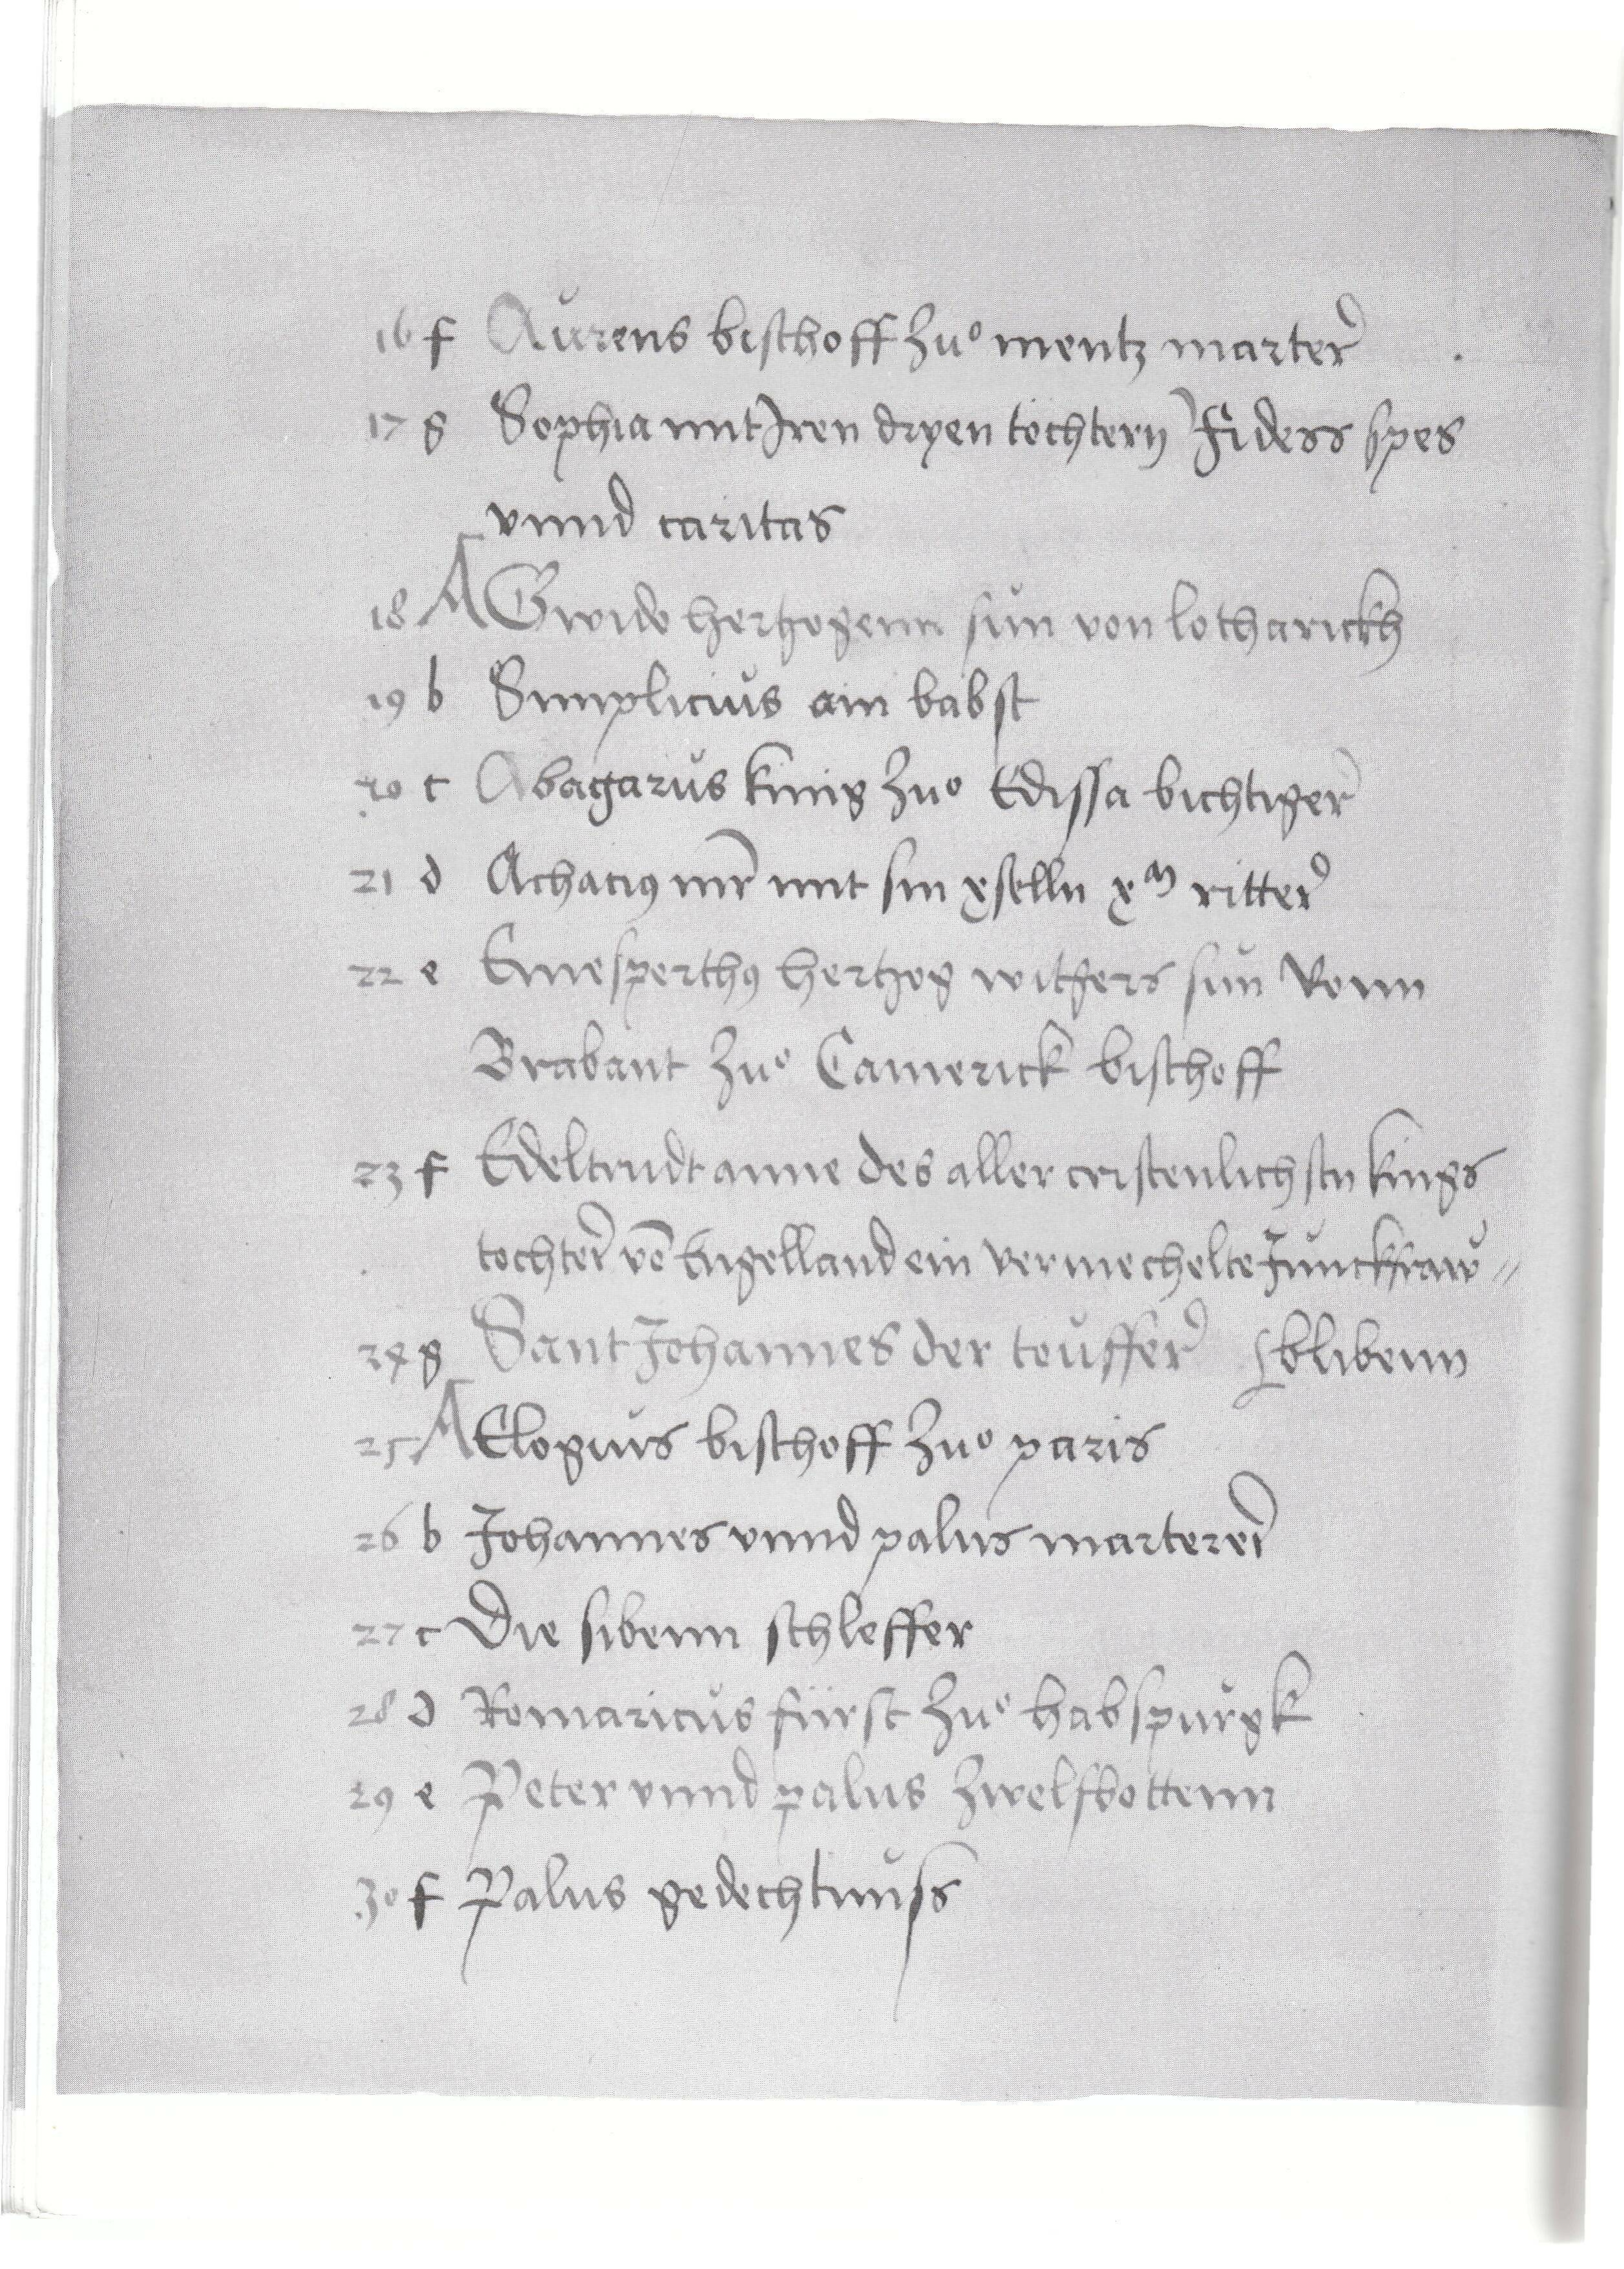 16 f Aurens bischoff zuͦ mentz marter
17 g Sophia mit Iren dryen tochtern Fidess spes
vnnd caritas
18 A Gwido hertzogenn sun von lotharickh
19 b Simplicius ain babst
20 c Abagarus kinig zuͦ Edissa bichtiger
21 d Achacius mr mit sin gselln xᵐ ritter
22 e Emesperthus hertzog witgers sun vonn
Brabant zuͦ Camerick bischoff
23 f Edeltrudt anne des aller cristenlichstn kings
tochter vō Engelland ein vermechelte Junckfraw //
24 g Sant Johannes der teuffer blibenn
25 A Elogius bischoff zuͦ paris
26 b Johannes vnnd palus marterer
27 c Die sibenn schleffer
28 d Romaricus fürst zuͦ habspurgk
29 e Peter vnnd palus zwelfbottenn
30 f Palus gedechtnuss